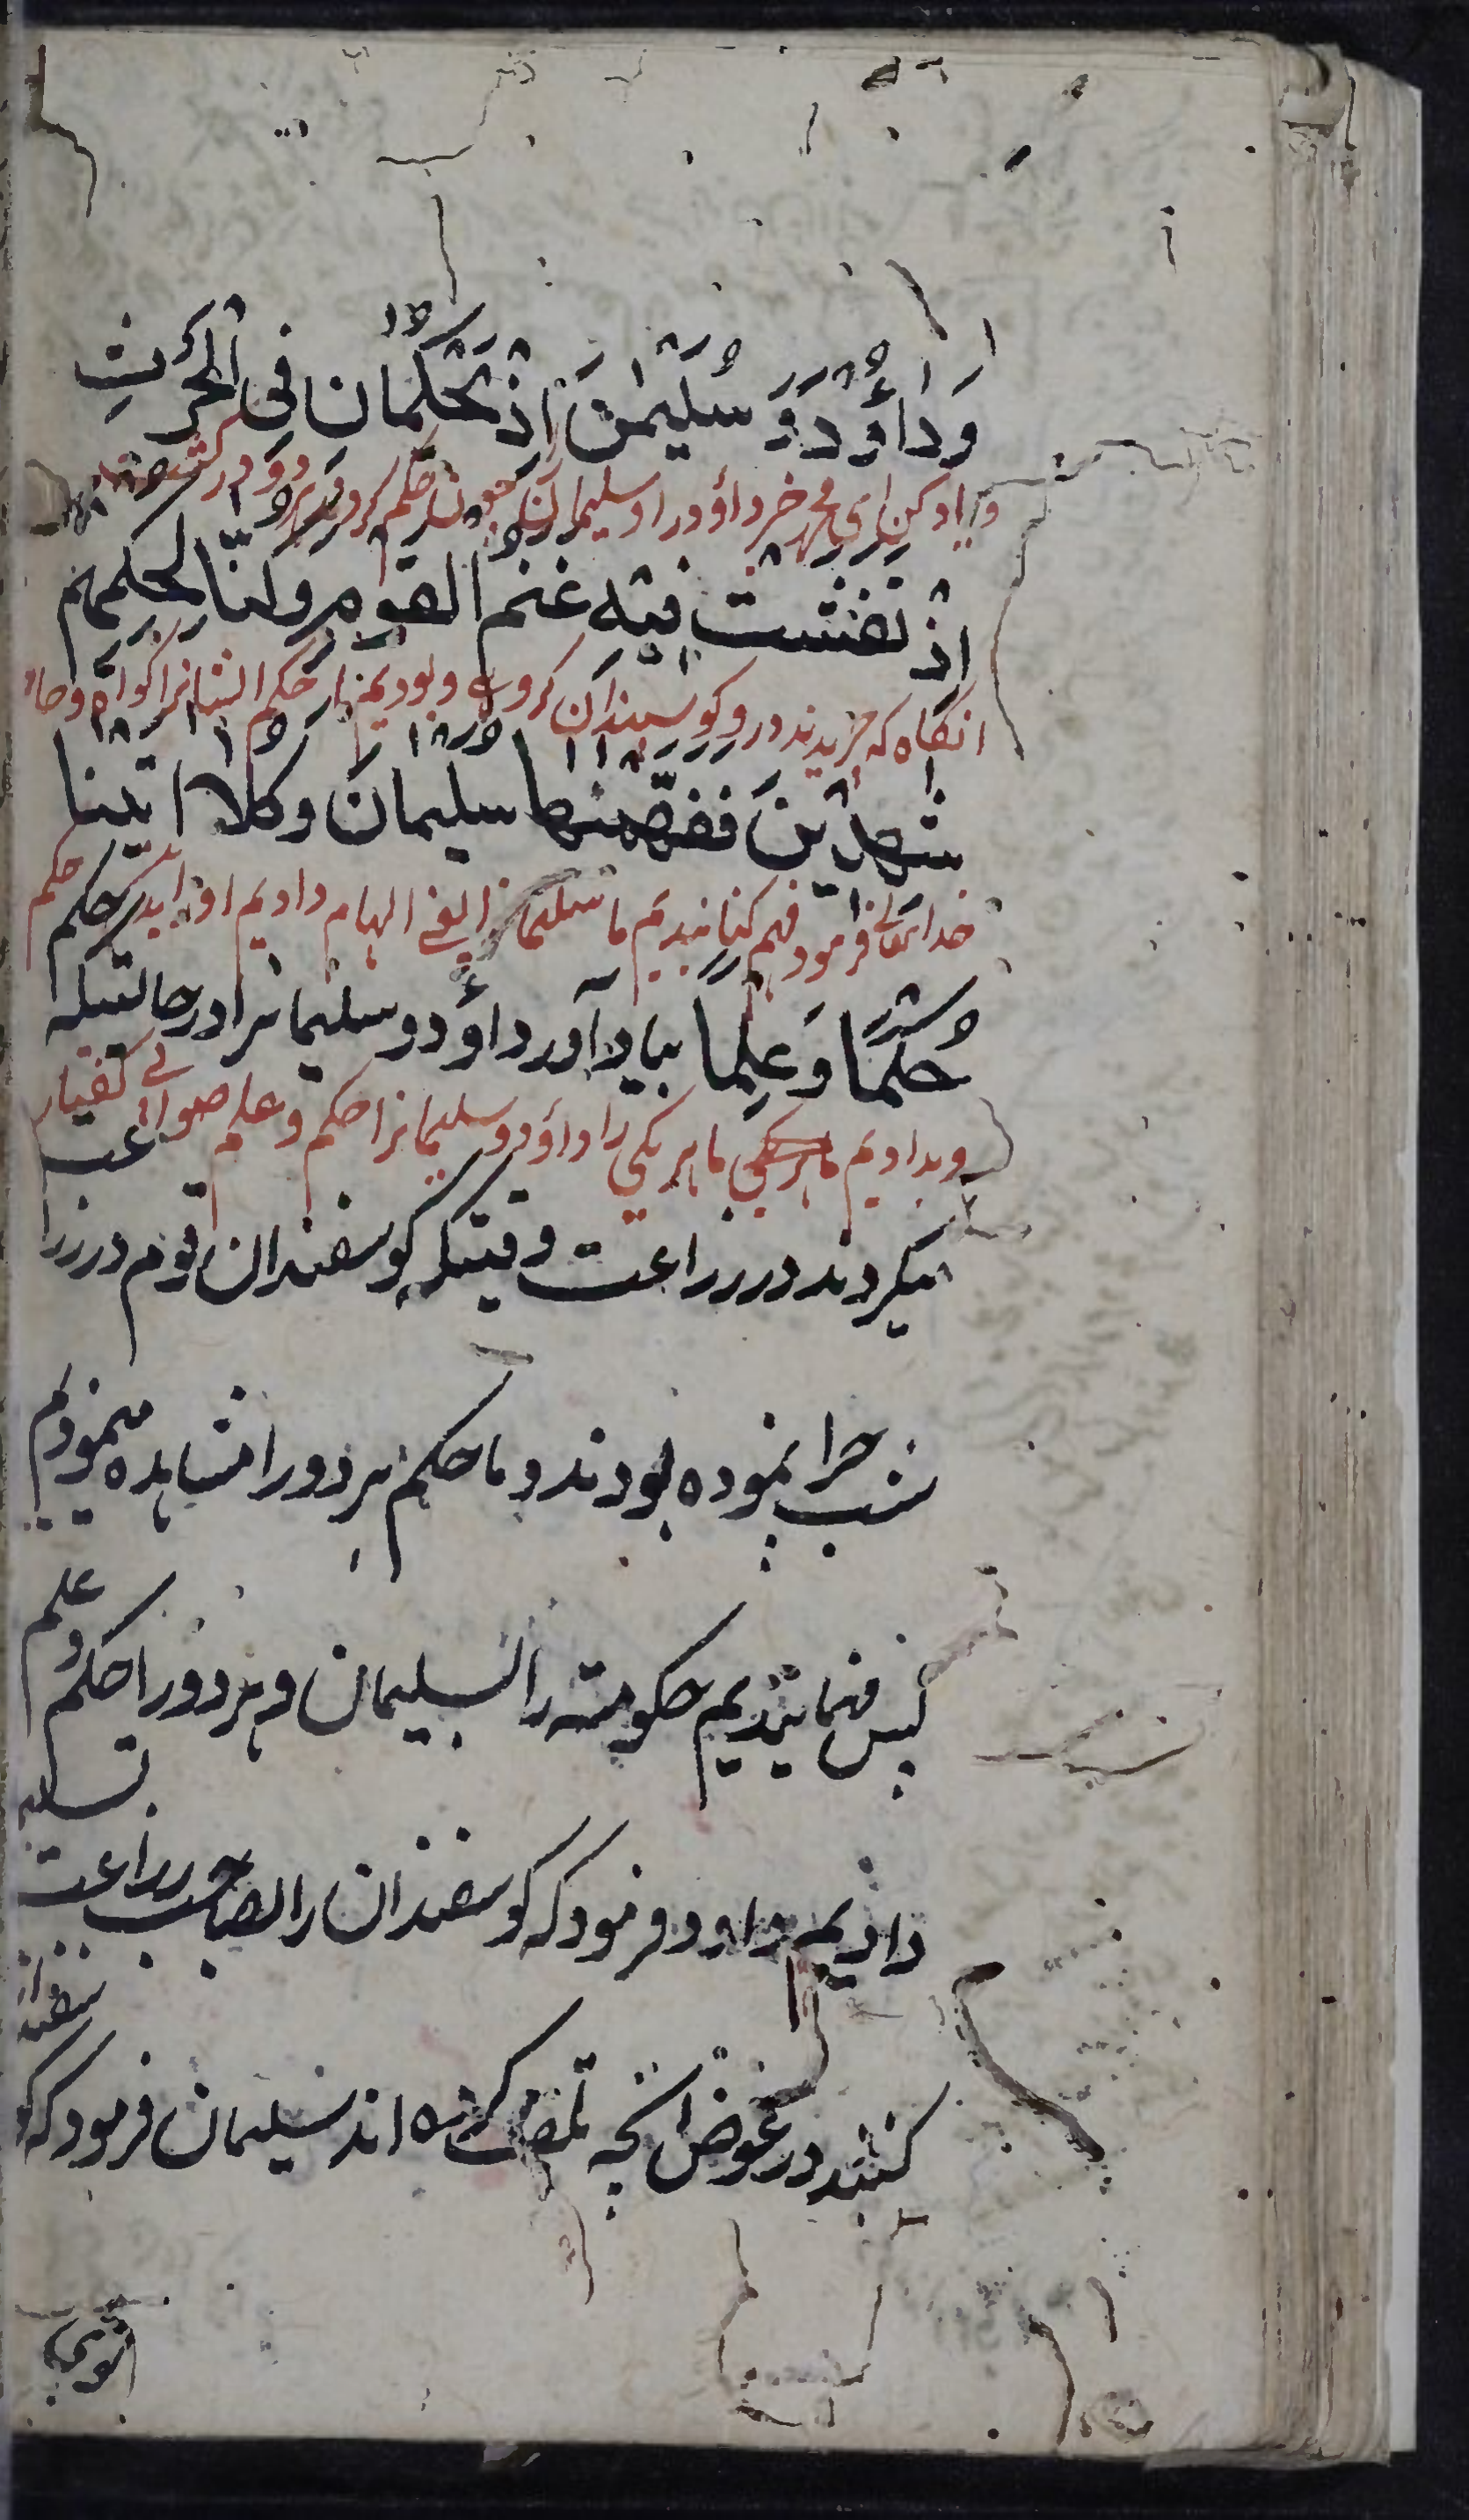 وَدَاوُدَ وَ سُلَيْمٰنَ اِذْ يَحْكُمَانِ فِى الْحَرْثِ
و یاد کن ای محمد خبر داؤد را و سلیمان را حکم کردند هر دو در کشت
اِذْ نَفَشَتْ فِيْهِ غَنَمُ الْقَوْمِ وَ كُنَّا لِحُكْمِهِمْ
انگاه که چریدند درو کوسپندان کروهی و بودیم مر حکم ایشانرا کواه
شٰهِدِيْنَ فَفَهَّمْنٰهَا سليمان وكلا اتينا
خدایتعالی فرمود فهم کنانیدیم ما سلیمانرا یعنی الهام دادیم حکم
حُكْمًا وَ عِلْمًا بیاد آور داؤد و سلیمانرا در حالتیکه حکم
و بدادیم ما هر یکی را داؤد و سلیمانرا حکم و علم
میکردند در زراعت وقتیکه کوسفندان قوم در زراعت
شب چرا نموده بودند و ما حکم هر دو را مشاهده مینمودیم
پس فهمانیدیم حکومت را بسلیمان و هر دو را حکم و علم
دادیم داود فرمود که کوسفندان را بصاحب زراعت تسلیم
کنند در عوض انچه تلف کرده اند سلیمان فرمود که کوسفندان